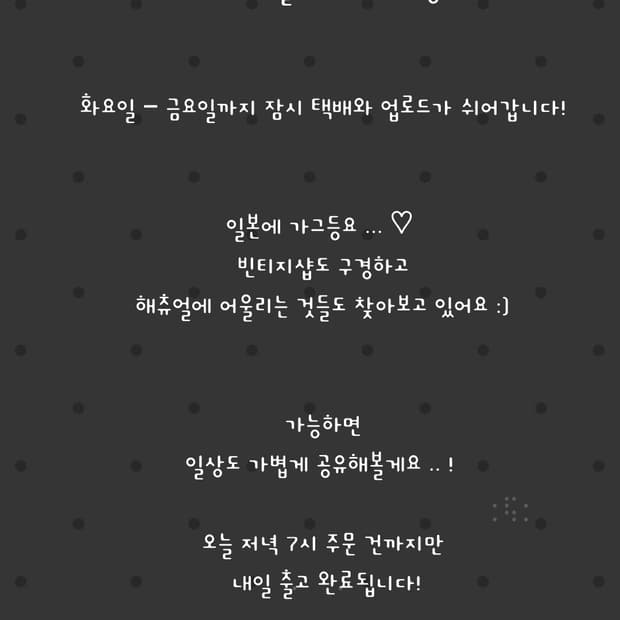 화요일 - 금요일까지 잠시 택배와 업로드가 쉬어갑니다!
일본에 가그등요 ... ♡
빈티지샵도 구경하고
해츄얼에 어울리는 것들도 찾아보고 있어요 :)
가능하면
일상도 가볍게 공유해볼게요 .. !
오늘 저녁 7시 주문 건까지만
내일 출고 완료됩니다!